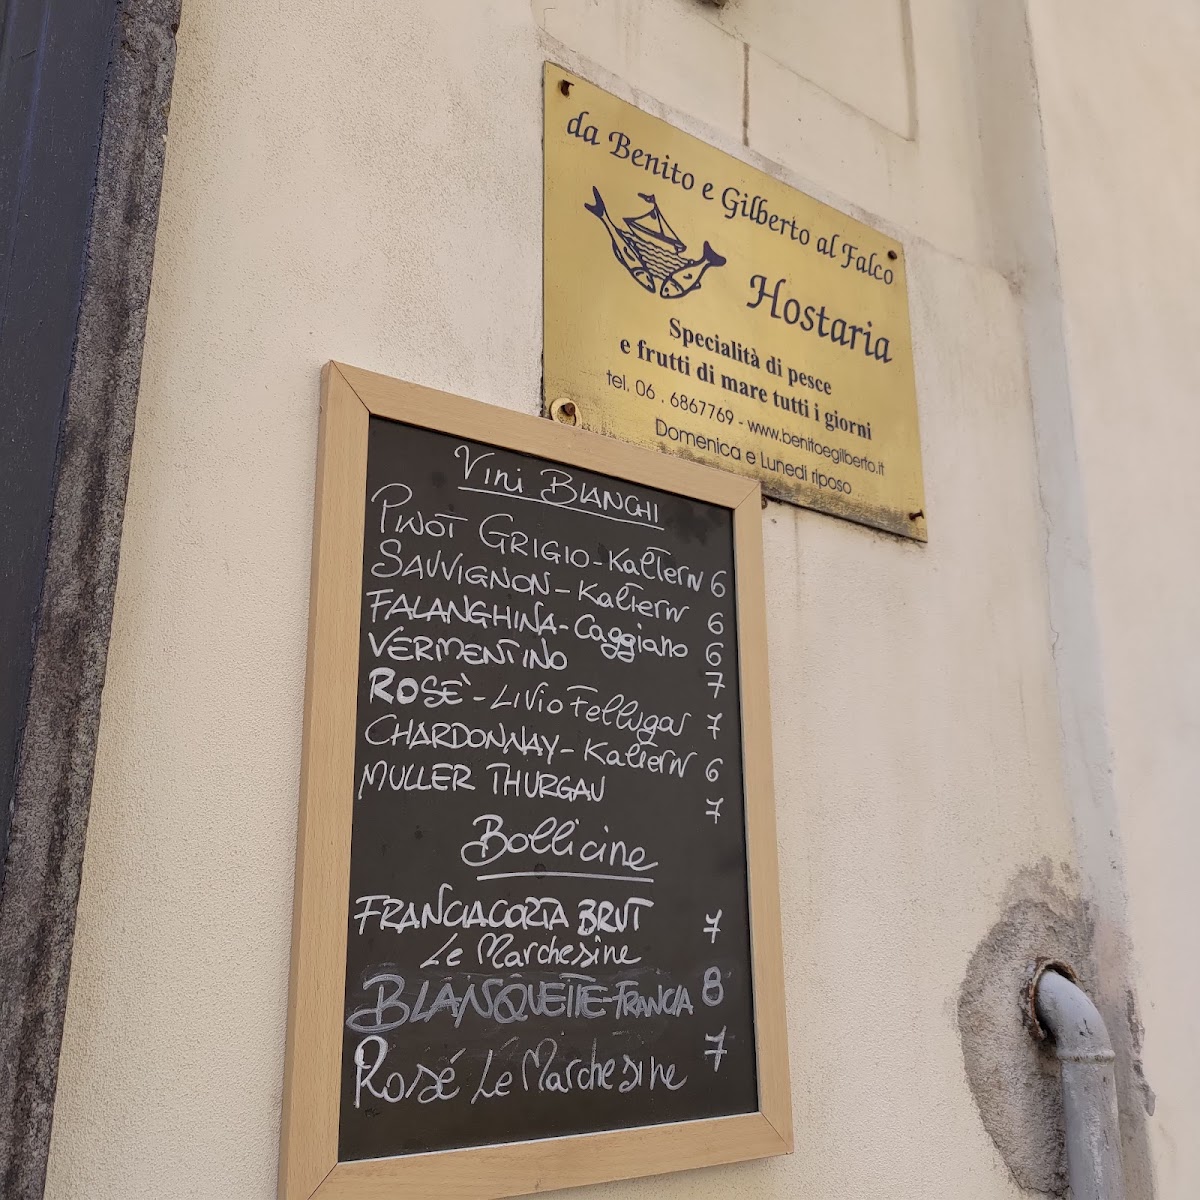 da Benito e Gilberto al Falco
Hostaria
Specialità di pesce
e frutti di mare tutti i giorni
tel. 06 . 6867769 - www.benitoegilberto.it
Domenica e Lunedi riposo
Vini BIANCHI
PINOT GRIGIO - KalTern 6
SAUVIGNON - KalTern 6
FALANGHINA - Caggiano 6
VERMENTINO 7
ROSE' - LIVIO Fellugar 7
CHARDONNAY - KalTern 6
MULLER THURGAU 7
Bollicine
FRANCIACORTA BRUT 7
Le Marchesine
BLANQUETTE - FRANCIA 8
Rosé Le Marchesine 7